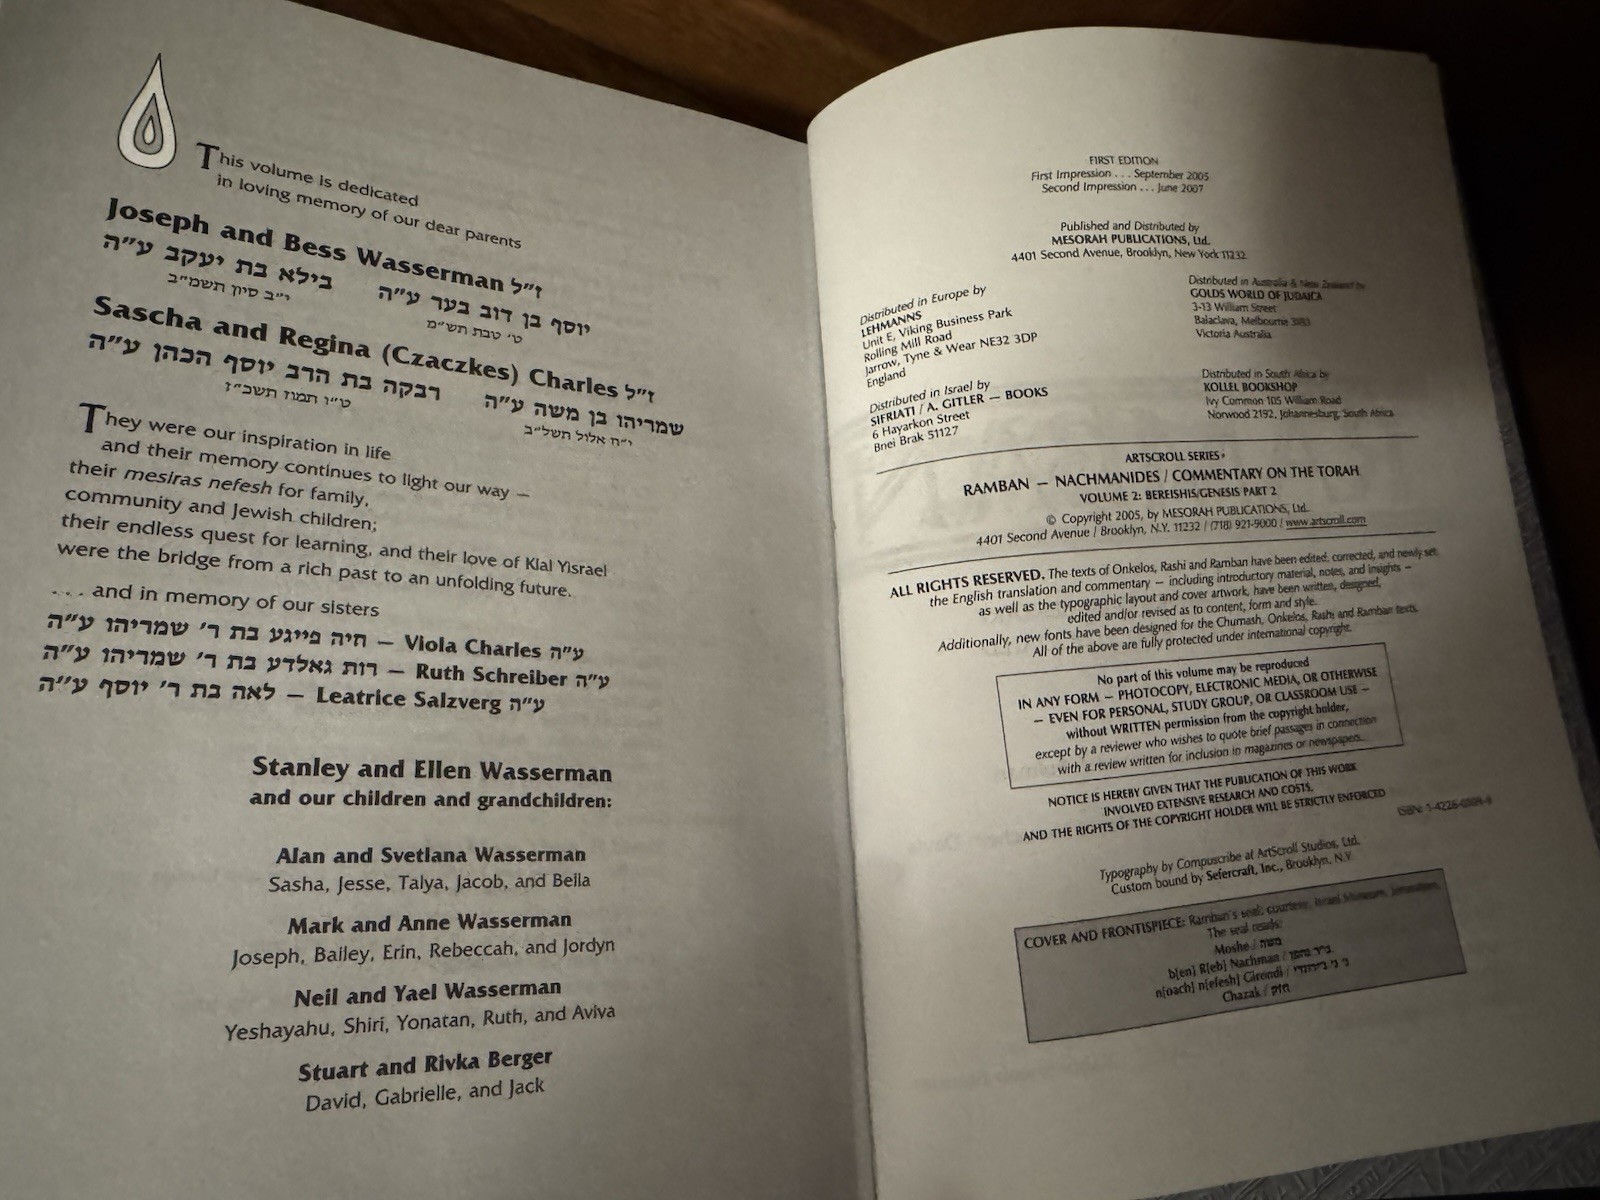 This volume is dedicated
in loving memory of our dear parents
Joseph and Bess Wasserman ז״ל
יוסף בן דוב בער ע״ה בילא בת יעקב ע״ה
ט׳ טבת תש״מ י״ב סיון תשמ״ב
Sascha and Regina (Czaczkes) Charles ז״ל
שמריהו בן משה ע״ה רבקה בת הרב יוסף הכהן ע״ה
י״ח אלול תשל״ב ט״ו תמוז תשכ״ז
They were our inspiration in life
and their memory continues to light our way —
their mesiras nefesh for family,
community and Jewish children;
their endless quest for learning, and their love of Klal Yisrael
were the bridge from a rich past to an unfolding future.
... and in memory of our sisters
חיה פייגע בת ר׳ שמריהו ע״ה — Viola Charles ע״ה
רות גאלדע בת ר׳ שמריהו ע״ה — Ruth Schreiber ע״ה
לאה בת ר׳ יוסף ע״ה — Leatrice Salzverg ע״ה
Stanley and Ellen Wasserman
and our children and grandchildren:
Alan and Svetlana Wasserman
Sasha, Jesse, Talya, Jacob, and Bella
Mark and Anne Wasserman
Joseph, Bailey, Erin, Rebeccah, and Jordyn
Neil and Yael Wasserman
Yeshayahu, Shiri, Yonatan, Ruth, and Aviva
Stuart and Rivka Berger
David, Gabrielle, and Jack
FIRST EDITION
First Impression . . . September 2005
Second Impression . . . June 2007
Published and Distributed by
MESORAH PUBLICATIONS, Ltd.
4401 Second Avenue, Brooklyn, New York 11232
Distributed in Europe by
LEHMANNS
Unit E, Viking Business Park
Rolling Mill Road
Jarrow, Tyne & Wear NE32 3DP
England
Distributed in Israel by
SIFRIATI / A. GITLER — BOOKS
6 Hayarkon Street
Bnei Brak 51127
Distributed in Australia & New Zealand by
GOLDS WORLD OF JUDAICA
3-13 William Street
Balaclava, Melbourne 3183
Victoria Australia
Distributed in South Africa by
KOLLEL BOOKSHOP
Ivy Common 105 William Road
Norwood 2192, Johannesburg, South Africa
ARTSCROLL SERIES®
RAMBAN — NACHMANIDES / COMMENTARY ON THE TORAH
VOLUME 2: BEREISHIS/GENESIS PART 2
© Copyright 2005, by MESORAH PUBLICATIONS, Ltd.
4401 Second Avenue / Brooklyn, N.Y. 11232 / (718) 921-9000 / www.artscroll.com
ALL RIGHTS RESERVED. The texts of Onkelos, Rashi and Ramban have been edited, corrected, and newly set;
the English translation and commentary — including introductory material, notes, and insights —
as well as the typographic layout and cover artwork, have been written, designed,
edited and/or revised as to content, form and style.
Additionally, new fonts have been designed for the Chumash, Onkelos, Rashi and Ramban texts.
All of the above are fully protected under international copyright.
No part of this volume may be reproduced
IN ANY FORM — PHOTOCOPY, ELECTRONIC MEDIA, OR OTHERWISE
— EVEN FOR PERSONAL, STUDY GROUP, OR CLASSROOM USE —
without WRITTEN permission from the copyright holder,
except by a reviewer who wishes to quote brief passages in connection
with a review written for inclusion in magazines or newspapers.
NOTICE IS HEREBY GIVEN THAT THE PUBLICATION OF THIS WORK
INVOLVED EXTENSIVE RESEARCH AND COSTS,
AND THE RIGHTS OF THE COPYRIGHT HOLDER WILL BE STRICTLY ENFORCED
ISBN:
Typography by Compuscribe at ArtScroll Studios, Ltd.
Custom bound by Sefercraft, Inc., Brooklyn, N.Y.
COVER AND FRONTISPIECE: Ramban's seal; courtesy, Israel Museum, Jerusalem.
The seal reads:
Moshe / משה
b[en] R[eb] Nachman / ב״ר נחמן
n[oach] n[efesh] Girondi /
Chazak / חזק